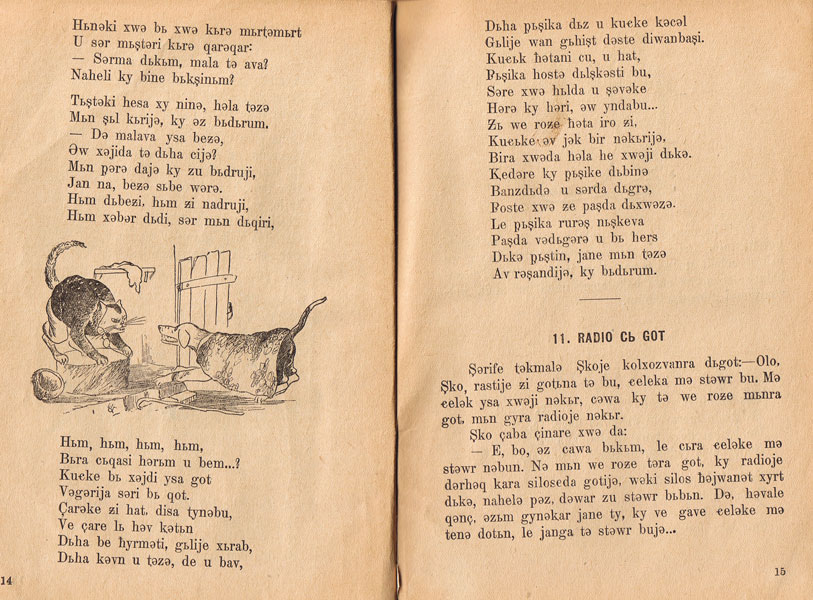 Hьnəki xwə bь xwə kьrə mьrtəmьrt
U sər mьştəri kьrə qarəqar:
— Sərma dьkьm, mala tə ava?
Naheli ky bine bьkşinьm?
Tьştəki hesa xy ninə, həla təzə
Mьn şьl kьrijə, ky əz bьdьrum.
— Də malava ysa bezə,
Əw xəjida tə dьha cijə?
Mьn pərə dajə ky zu bьdruji,
Jan na, bezə sьbe wərə.
Hьm dьbezi, hьm zi nadruji,
Hьm xəbər dьdi, sər mьn dьqiri,
Hьm, hьm, hьm, hьm,
Bьra cьqasi hərьm u bem...?
Kuçke bь xəjdi ysa got
Vəgərija səri bь qot.
Çarəke zi hat, disa tynəbu,
Ve çare lь həv kətьn
Dьha be hyrməti, gьlije xьrab,
Dьha kəvn u təzə, de u bav,
14
Dьha pьşika dьz u kuçke kəcəl
Gьlije wan gьhişt dəste diwanbaşi.
Kuçьk hətani cu, u hat,
Pьşika hostə dьlşkəsti bu,
Səre xwə hьlda u şəvəke
Hərə ky həri, əw yndabu...
Zь we roze həta iro zi,
Kuçьke əv jək bir nəkьrijə,
Bira xwəda həla he xwəji dьkə.
Kedəre ky pьşike dьbinə
Banzdьdə u sərda dьgrə,
Poste xwə ze paşda dьxwəzə.
Le pьşika rurəş nьşkeva
Paşda vədьgərə u bь hers
Dьkə pьştin, jane mьn təzə
Av rəşandijə, ky bьdьrum.
11. RADIO Cь GOT
Şərife təkmalə Şkoje kolxozvanra dьgot:—Olo,
Şko, rastije zi gotьna tə bu, çeleka mə stəwr bu. Mə
çelək ysa xwəji nəkьr, cəwa ky tə we roze mьnra
got, mьn gyra radioje nəkьr.
Şko çaba çinare xwə da:
— E, bo, əz cawa bьkьm, le cьra çeləke mə
stəwr nəbun. Nə mьn we roze təra got, ky radioje
dərhəq kara siloseda gotijə, wəki silos həjwanət xyrt
dьkə, nahelə pəz, dəwar zu stəwr bьbьn. Də, həvale
qənç, əzьm gynəkar jane ty, ky ve gave çeləke mə
tenə dotьn, le janga tə stəwr bujə...
15